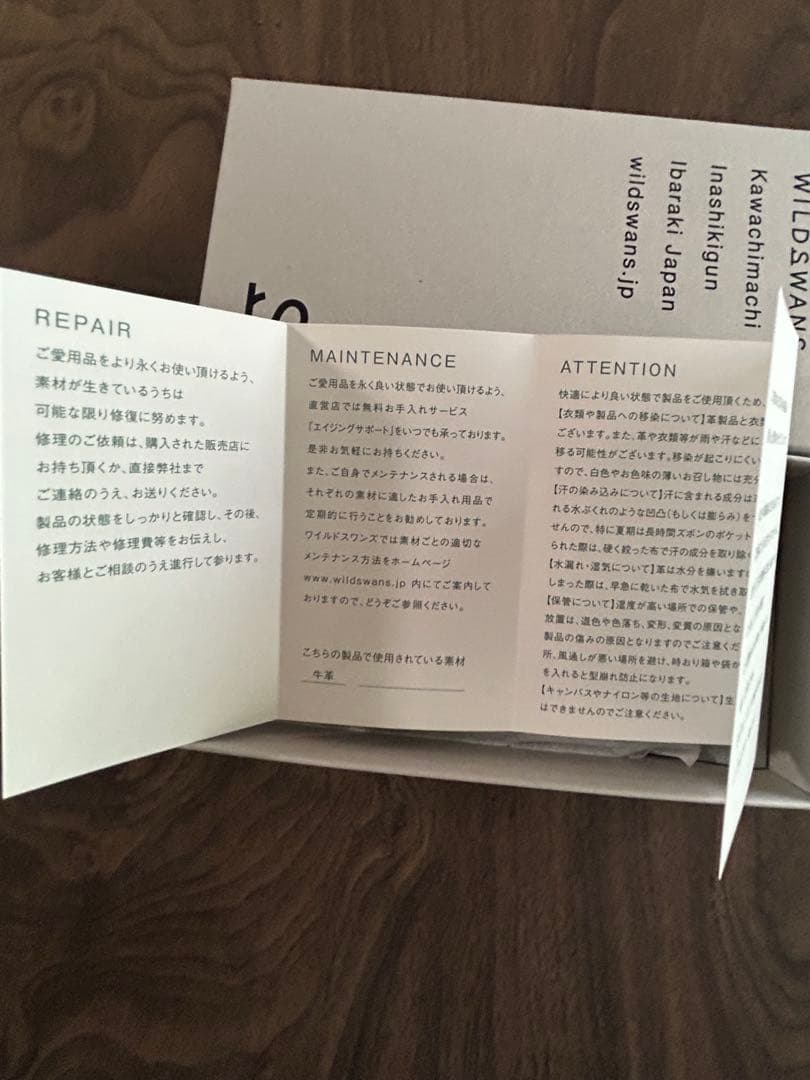 WILDSWANS
Kawachimachi
Inashikigun
Ibaraki Japan
wildswans.jp
REPAIR
ご愛用品をより永くお使い頂けるよう、
素材が生きているうちは
可能な限り修復に努めます。
修理のご依頼は、購入された販売店に
お持ち頂くか、直接弊社まで
ご連絡のうえ、お送りください。
製品の状態をしっかりと確認し、その後、
修理方法や修理費等をお伝えし、
お客様とご相談のうえ進行して参ります。
MAINTENANCE
ご愛用品を永く良い状態でお使い頂けるよう、
直営店では無料お手入れサービス
『エイジングサポート』をいつでも承っております。
是非お気軽にお持ちください。
また、ご自身でメンテナンスされる場合は、
それぞれの素材に適したお手入れ用品で
定期的に行うことをお勧めしております。
ワイルドスワンズでは素材ごとの適切な
メンテナンス方法をホームページ
www.wildswans.jp 内にてご案内して
おりますので、どうぞご参照ください。
こちらの製品で使用されている素材
牛革
ATTENTION
快適により良い状態で製品をご使用頂くため、
【衣類や製品への移染について】革製品と衣類
ございます。また、革や衣類等が雨や汗などに
移る可能性がございます。移染が起こりにくい
すので、白色やお色味の薄いお召し物には充分
【汗の染み込みについて】汗に含まれる成分は
れる水ぶくれのような凹凸(もしくは膨らみ)を
せんので、特に夏期は長時間ズボンのポケット
られた際は、硬く絞った布で汗の成分を取り除
【水漏れ・湿気について】革は水分を嫌います
しまった際は、早急に乾いた布で水気を拭き取
【保管について】湿度が高い場所での保管や、
放置は、退色や色落ち、変形、変質の原因とな
製品の傷みの原因となりますのでご注意くだ
所、風通しが悪い場所を避け、時おり箱や袋か
を入れると型崩れ防止になります。
【キャンバスやナイロン等の生地について】生
はできませんのでご注意ください。